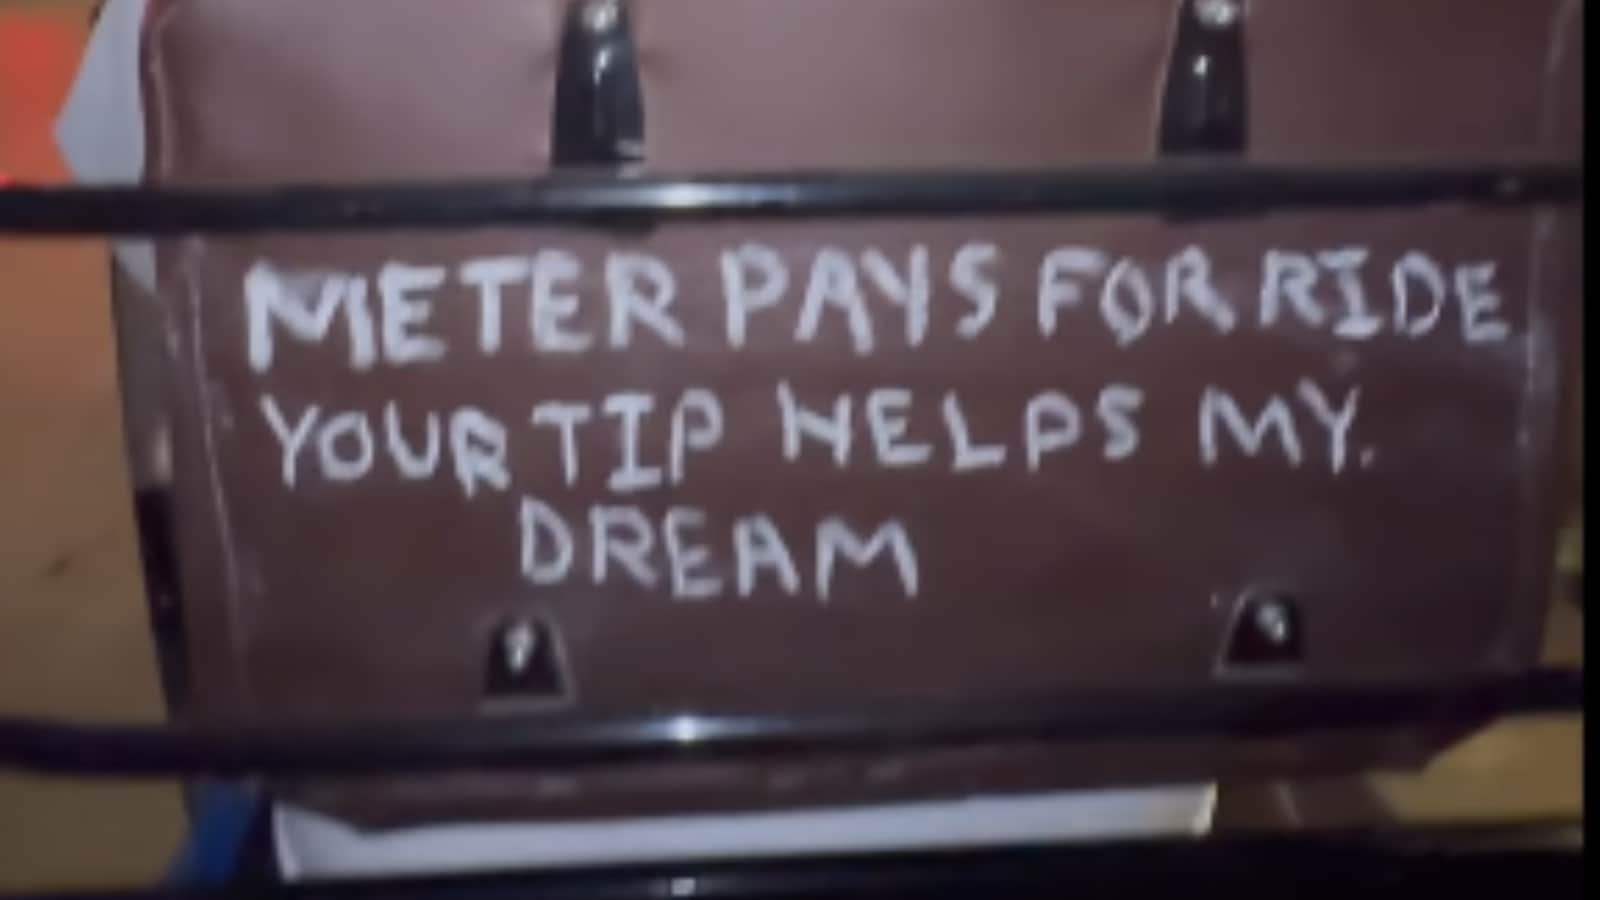 METER PAYS FOR RIDE
YOUR TIP HELPS MY.
DREAM